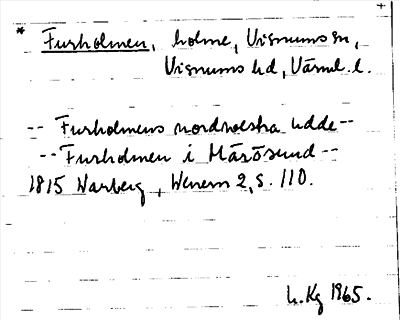 * Furholmen, holme, Visnums sn,
Visnums hd, Värml. l.
-- Furholmens nordvestra udde --
-- Furholmen i Måsösund --
1815 Warberg, Wenern 2, s. 110.
L. Kg 1965.